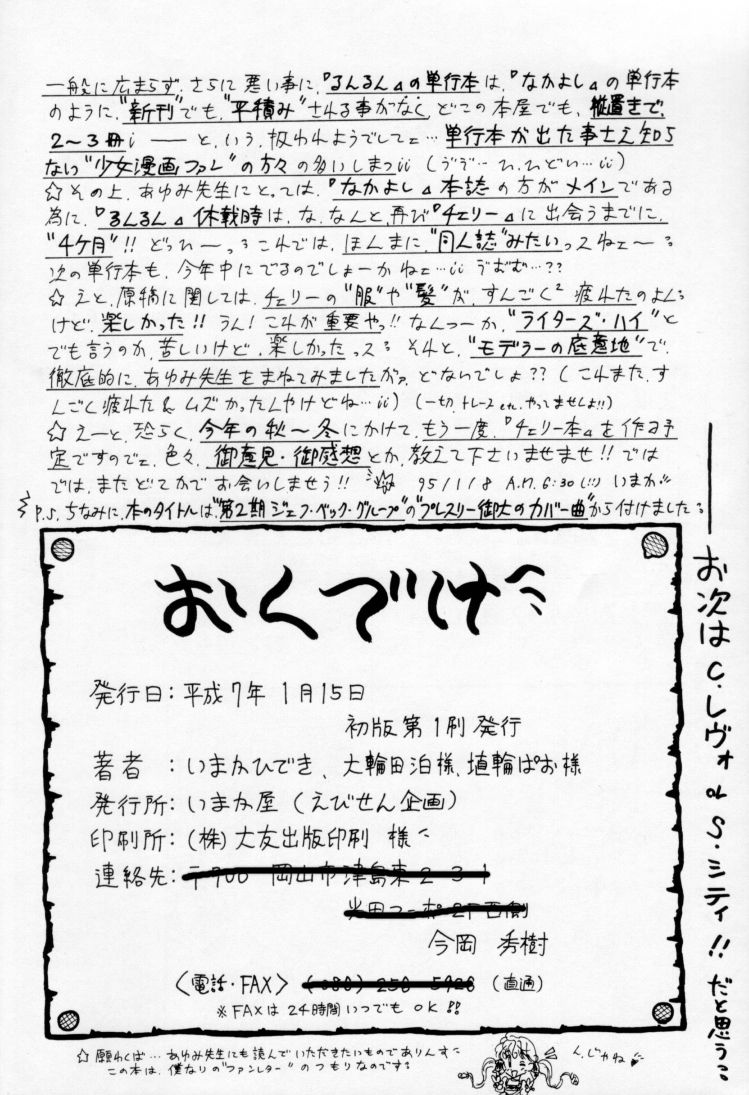 一般に広まらず、さらに悪い事に、『るんるん』の単行本は、『なかよし』の単行本
のように、"新刊"でも、"平積み"される事がなく、どこの本屋でも、縦置きで、
2〜3冊 ── と、いう、扱われようでしてェ…単行本が出た事さえ知ら
ない"少女漫画ファン"の方々の多いしまつ (う゛う゛… ひ、ひどい…)
☆その上、あゆみ先生にとっては、『なかよし』本誌の方がメインである
為に、『るんるん』休載時は、な、なんと、再び『チェリー』に出会うまでに、
"4ケ月"!! どっひーっ、これでは、ほんまに、"同人誌"みたいっスねェ〜
次の単行本も、今年中にでるのでしょーかねェ… う゛おむ…??
☆えと、原稿に関しては、チェリーの"服"や"髪"が、すんごく² 疲れたのよん
けど、楽しかった!! うん! これが重要やっ!! なんつーか、"ライターズ・ハイ"と
でも言うのか、苦しいけど、楽しかったっス それと、"モデラーの底意地"で、
徹底的に、あゆみ先生をまねてみましたがァ、どないでしょ?? (これまた、す
んごく疲れた&ムズかったんやけどね…) (一切、トレースetc.やってませんよ!!)
☆えーと、恐らく、今年の秋〜冬にかけて、もう一度、『チェリー本』を作る予
定ですのでェ、色々、御意見・御感想とか、教えて下さいませませ!! では
では、またどこかでお会いしませう!! 95/1/8 A.M. 6:30 (!!) いまか
P.S. ちなみに、本のタイトルは、"第2期 ジェフ・ベック・グループ"の"プレスリー御大のカバー曲"から付けました
お次は C.レヴォ or S.シティ!! だと思う
おくづけ
発行日：平成7年 1月15日
初版第1刷発行
著者 ：いまかひでき、大輪田泊様、埴輪ぱお様
発行所：いまか屋 (えびせん企画)
印刷所：(株)大友出版印刷 様
連絡先：〒700 岡山市津島東2 3 1
2F西側
今岡 秀樹
〈電話・FAX〉 (直通)
※FAXは24時間いつでもOK!!
☆願わくば… あゆみ先生にも読んでいただきたいものでありんす
この本は、僕なりの"ファンレター"のつもりなのです
んじゃね